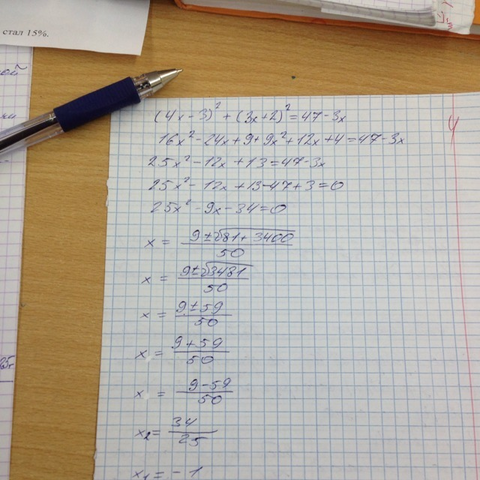 стал 15%.
(4x-3)² + (3x+2)² = 47-3x
16x² - 24x + 9 + 9x² + 12x + 4 = 47-3x
25x² - 12x + 13 = 47-3x
25x² - 12x + 13-47 + 3 = 0
25x² - 9x - 34 = 0
x = (9 ± √81 + 3400) / 50
x = (9 ± √3481) / 50
x = (9 ± 59) / 50
x = (9 + 59) / 50
x = (9 - 59) / 50
x₂ = 34 / 25
x₁ = - 1